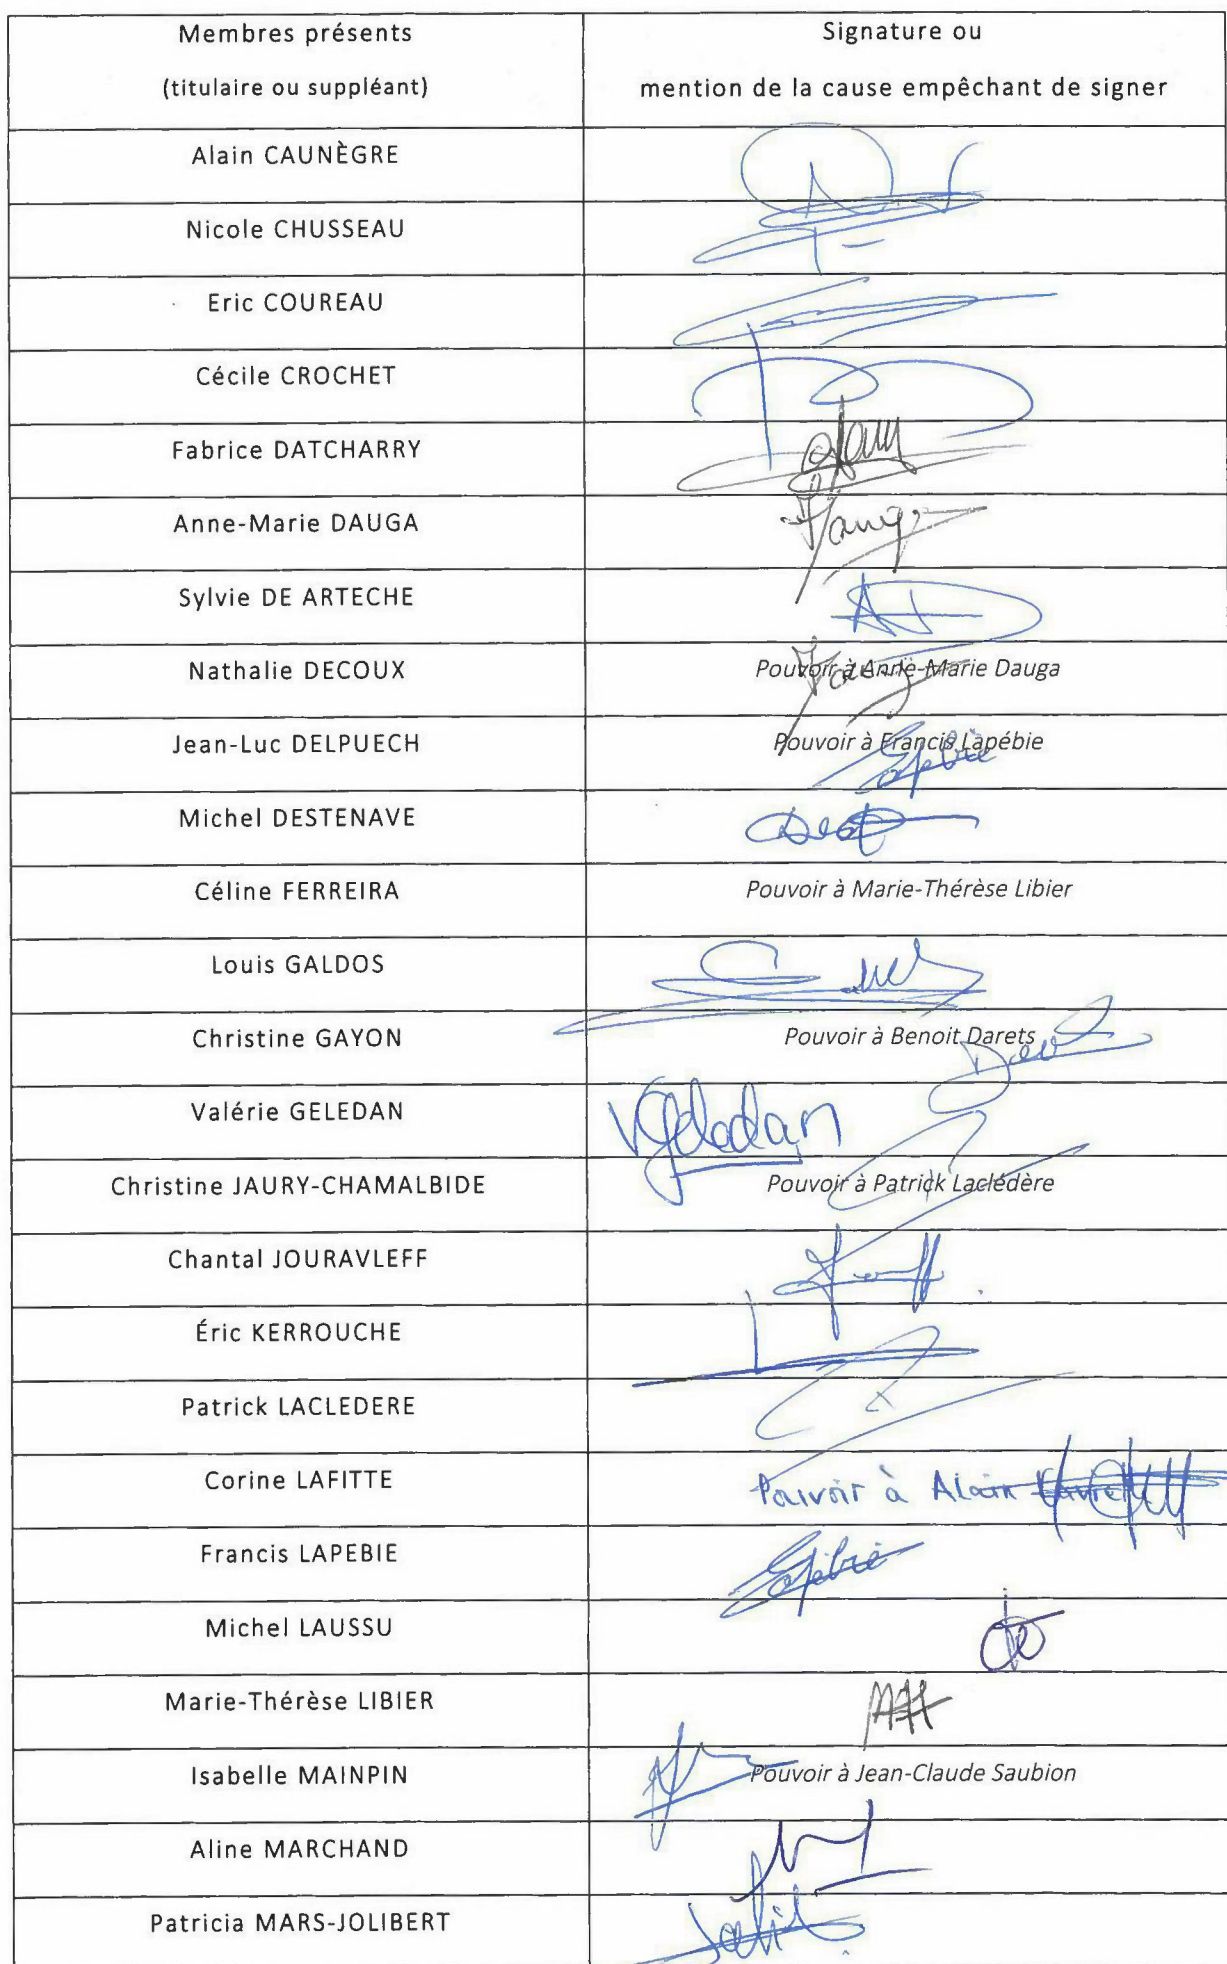 Membres présents
(titulaire ou suppléant)
Signature ou
mention de la cause empêchant de signer
Alain CAUNÈGRE
Nicole CHUSSEAU
Eric COUREAU
Cécile CROCHET
Fabrice DATCHARRY
Anne-Marie DAUGA
Sylvie DE ARTECHE
Nathalie DECOUX
Pouvoir à Anne-Marie Dauga
Jean-Luc DELPUECH
Pouvoir à Francis Lapébie
Michel DESTENAVE
Céline FERREIRA
Pouvoir à Marie-Thérèse Libier
Louis GALDOS
Christine GAYON
Pouvoir à Benoit Darets
Valérie GELEDAN
VGeledan
Christine JAURY-CHAMALBIDE
Pouvoir à Patrick Laclédère
Chantal JOURAVLEFF
Éric KERROUCHE
Patrick LACLEDERE
Corine LAFITTE
Pouvoir à Alain
Francis LAPEBIE
Lapébie
Michel LAUSSU
Marie-Thérèse LIBIER
Isabelle MAINPIN
Pouvoir à Jean-Claude Saubion
Aline MARCHAND
Patricia MARS-JOLIBERT